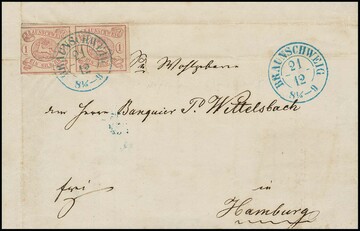 BRAUNSCHWEIG
21
12
8½-9
BRAUNSCHWEIG
21
12
8½-9
1
1
Sr Wohlgeboren
dem Herrn Banquier P. Wittelsbach
frei
in
Hamburg